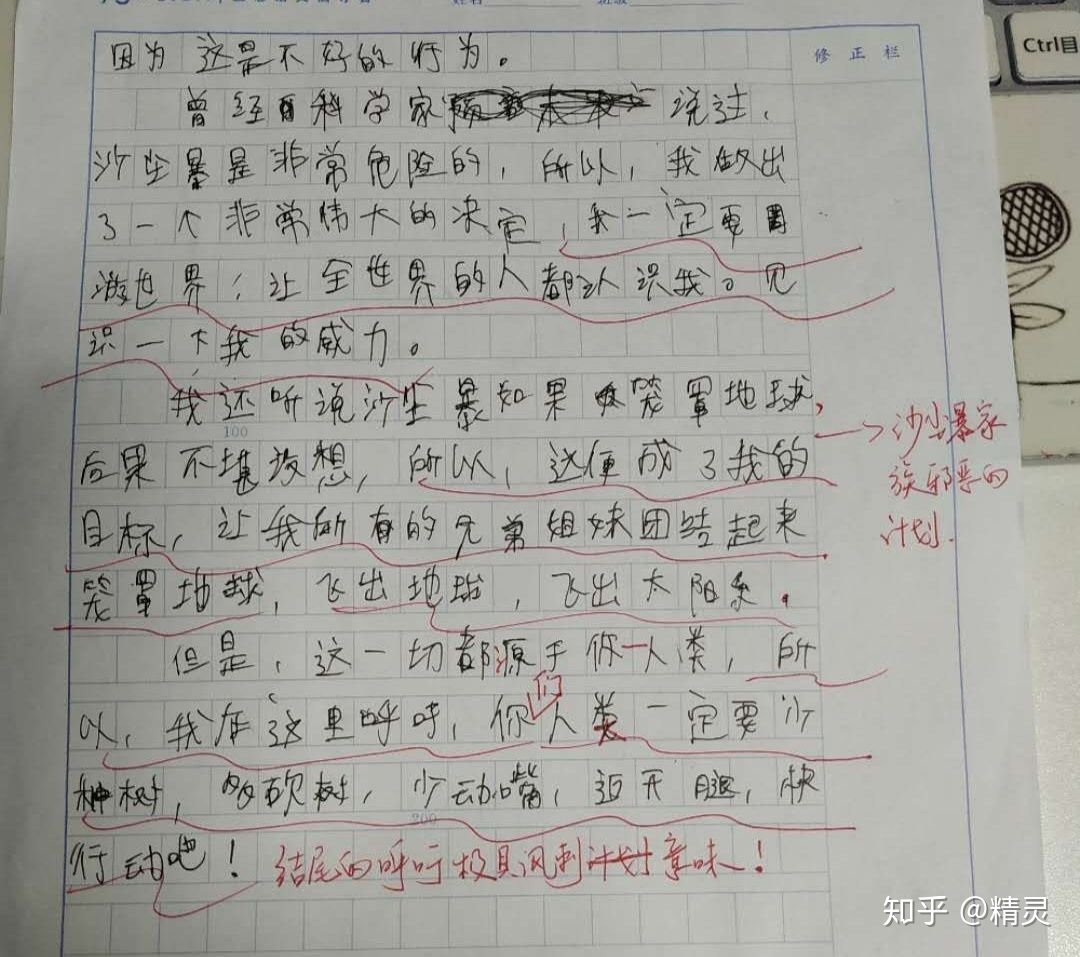 因为这是不好的行为。
修正栏
Ctrl
曾经有科学家说过，
沙尘暴是非常危险的，所以，我做出
了一个非常伟大的决定，我一定要周
游世界，让全世界的人都认识我。见
识一下我的威力。
我还听说沙尘暴如果笼罩地球，
100
后果不堪设想，所以，这便成了我的
→沙尘暴家
族邪恶的
计划.
目标，让我所有的兄弟姐妹团结起来
笼罩地球，飞出地球，飞出太阳系。
但是，这一切都源于你人类，所
以，我在这里呼吁，你们人类一定要少
种树，多砍树，少动嘴，迈开腿，快
200
行动吧！结尾的呼吁极具讽刺意味！
知乎 @精灵